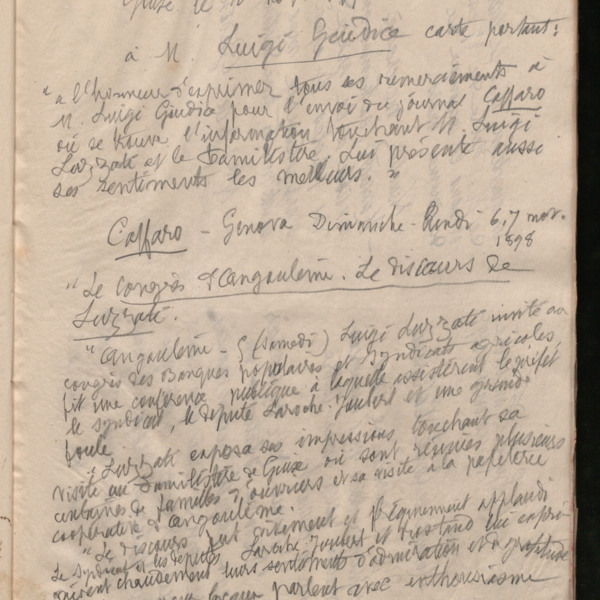 Guise le
à M. Luigi Giudice carte portant:
"a l'honneur d'exprimer tous ses remerciements à
M. Luigi Giudice pour l'envoi du journal Caffaro
où se trouve l'information touchant M. Luigi
Luzzati et le Familistère. Lui présente aussi
ses sentiments les meilleurs."
Caffaro - Genova Dimanche - Lundi 6.7 nov.
1898
"Le congrès d'Angoulême. Le discours de
Luzzati.
"Angoulême - 5 (Samedi) Luigi Luzzati invité au
congrès des Banques populaires et Syndicats agricoles,
fit une conférence publique à laquelle assistèrent le préfet
le syndicat, le député Laroche-Joubert et une grande
foule.
"Luzzati exposa ses impressions touchant sa
visite au Familistère de Guise où sont réunies plusieurs
centaines de familles d'ouvriers et sa visite à la papeterie
coopérative d'Angoulême.
"Le discours fut vivement et fréquemment applaudi
Le Syndicat et les députés Laroche Joubert et Rostand lui expri-
mèrent chaudement leurs sentiments d'admiration et de gratitude
locaux parlent avec enthousiasme